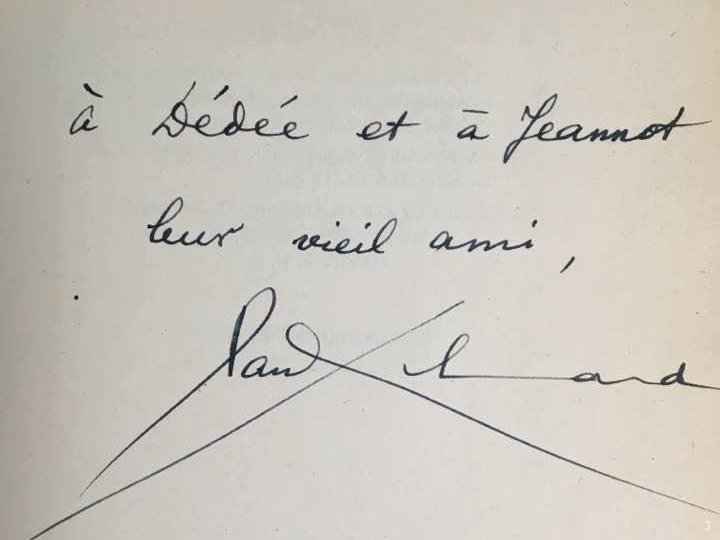 à Dédée et à Jeannot
leur vieil ami,
Paul Eluard
3